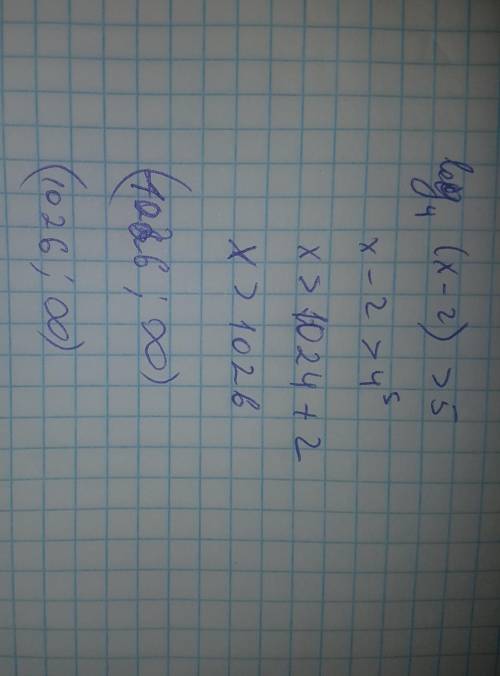 log₄ (x - 2) > 5
x - 2 > 4⁵
x > 1024 + 2
x > 1026
(1026 ; ∞)
(1026 ; ∞)